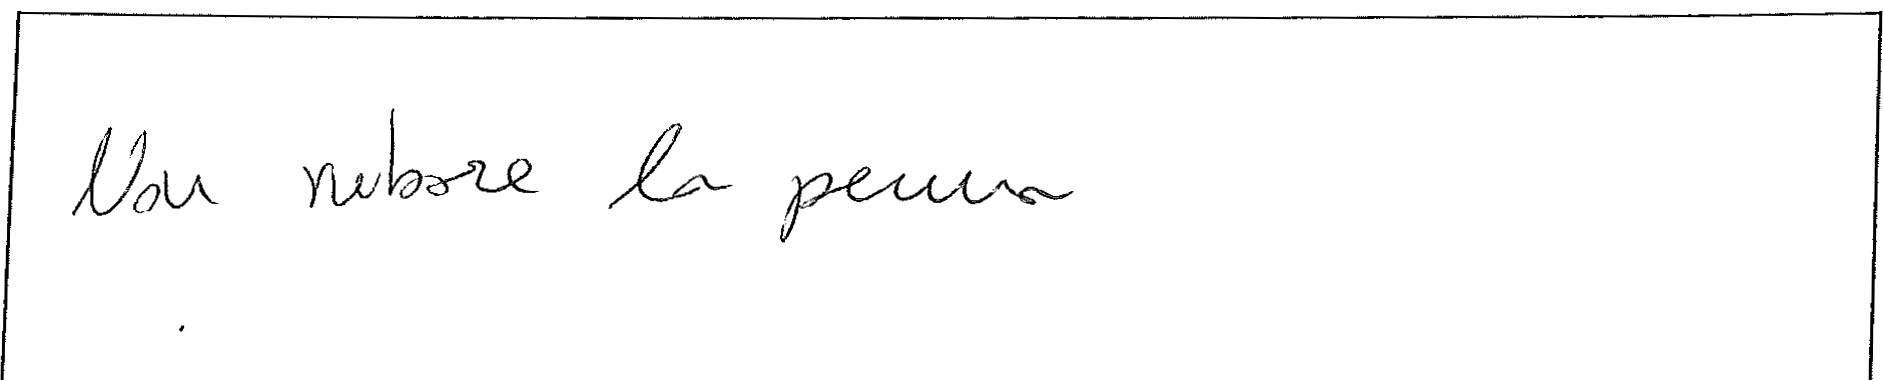 Non rubare la penna